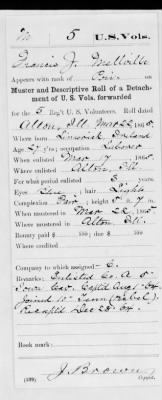 M 5 U.S. Vols.
Francis J. Melville
Appears with rank of Priv. on
Muster and Descriptive Roll of a Detach-
ment of U. S. Vols. forwarded
for the 5 Reg't U.S. Volunteers. Roll dated
Alton, Ill Mar 22, 1865.
Where born Limerick Ireland
Age 27 y'rs; occupation Laborer
When enlisted Mar 17, 1865
Where enlisted Alton, Ills
For what period enlisted 3 years.
Eyes Blue; hair Light
Complexion Fair; height 5 ft. 7 in.
When mustered in Mar 22, 1865
Where mustered in Alton, Ill.
Bounty paid $ 100; due $ 100
Where credited
Company to which assigned C.
Remarks: Enlisted Co. A 5
Iowa Cav. Capt'd Aug / 64
Joined 10 Tenn (Rebel).
Recapt'd Dec 28 / 64.
Book mark:
J. Brown
(339) Copyist.